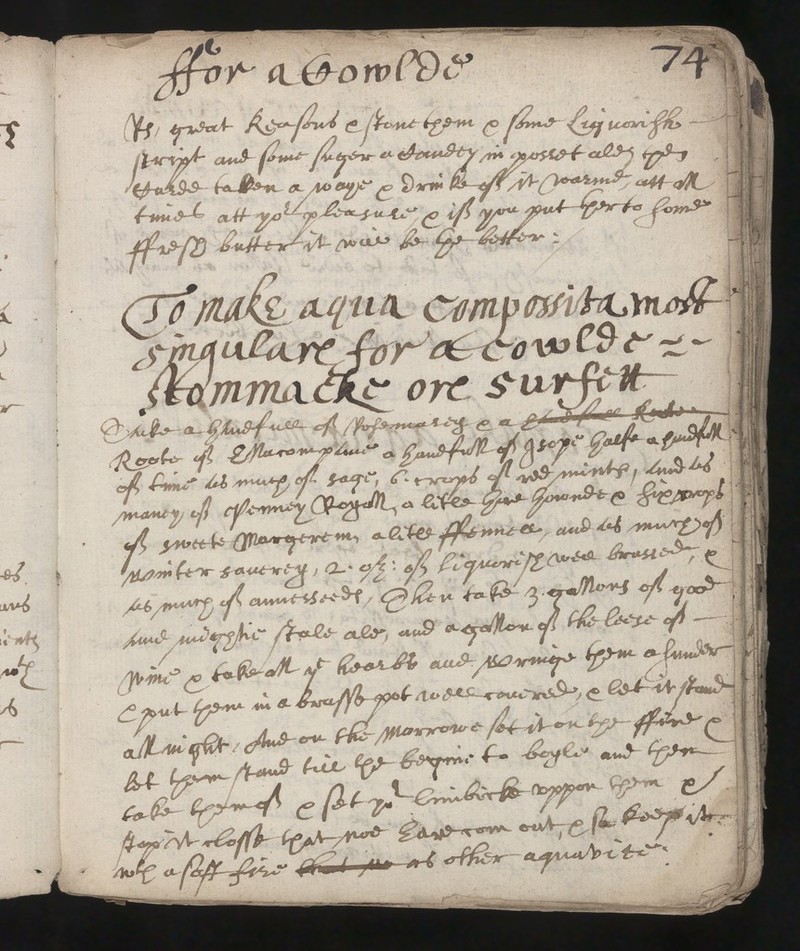 74
ffor a Cowlde
Rx, great Reasons & stone them & some Liquorish
script and some suger a Candey in posset ale, the
Curde taken a waye & drinke of it warme, att all
times att yor pleasure & if you put therto some
ffresh butter it will be the better:
To make aqua Compossita most
singulare for a cowlde
stommacke ore surfett
Take a handfull of Rosemarey & a
Roote of Ellacompane a handfull of Isope halfe a handfull
of time as much of sage, 6 crops of red minth, and as
maney of Penney Royall, a litle hore hownde & six crops
of sweete Margerem, a litle ffennell, and as much of
winter saverey, 2 oz: of liquorish well brussed, &
as much of annesseeds, Then take 3 gallons of good
and mightie stale ale, and a gallon of the leese of
wine & take all ye hearbs and wringe them a sunder
& put them in a brasse pot well covered, & let it stand
all night, And on the morrowe set it on the ffire &
let them stand till the begine to boyle and then
take them of & set yor limbicke vppon them &
stop it close that noe Eare com out, & so keep it
wth a soft fire as other aquavite: